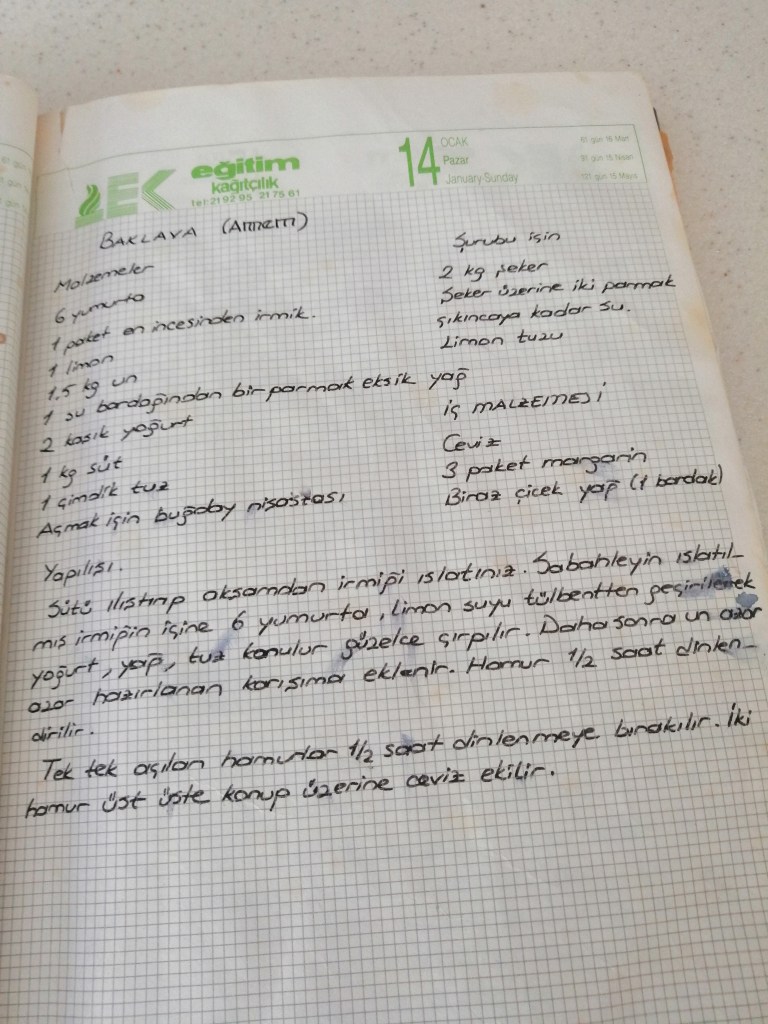 EK eğitim
kağıtçılık
tel: 21 92 95 21 75 61
14 OCAK
Pazar
January-Sunday
BAKLAVA (Annem)
Malzemeler
6 yumurta
1 paket en incesinden irmik.
1 limon
1.5 kg un
1 su bardağından bir parmak eksik yağ
2 kaşık yoğurt
1 kg süt
1 çimdik tuz
Açmak için buğday nişastası
Şurubu için
2 kg şeker
Şeker üzerine iki parmak
çıkıncaya kadar su.
Limon tuzu
İÇ MALZEMESİ
Ceviz
3 paket margarin
Biraz çiçek yağ (1 bardak)
Yapılışı.
Sütü ılıştırıp akşamdan irmiği ıslatınız. Sabahleyin ıslatıl-
mış irmiğin içine 6 yumurta, limon suyu tülbentten geçirilerek
yoğurt, yağ, tuz konulur güzelce çırpılır. Daha sonra un azar
azar hazırlanan karışıma eklenir. Hamur 1/2 saat dinlen-
dirilir.
Tek tek açılan hamurlar 1/2 saat dinlenmeye bırakılır. İki
hamur üst üste konup üzerine ceviz ekilir.